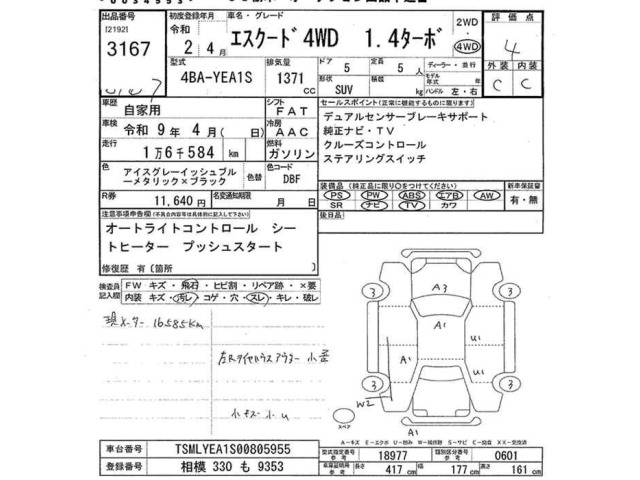 出品番号
[2192]
3167
初度登録年月
令和
2 年 4 月
車名・グレード
エスクード4WD 1.4ターボ
2WD
・
4WD
評価点
4
外装 内装
C C
型式
4BA-YEA1S
排気量
1371
CC
ドア
5
定員
5 人
形状
SUV
積載
kg
ディーラー・並行
モデル年式 年
ハンドル 左・右
車歴
自家用
シフト
FAT
車検
令和 9年 4月( 日)
冷房
AAC
走行
1万6千584 km
燃料
ガソリン
色
アイスグレーイッシュブル
ーメタリック×ブラック
色替
色コード
DBF
R券
11,640 円
名変通知期限
月 日
セールスポイント(正常に機能するものに限ります)
デュアルセンサーブレーキサポート
純正ナビ・TV
クルーズコントロール
ステアリングスイッチ
装備品(純正品に限り○をつけてください)
PS PW ABS エアB AW
SR ナビ TV カワ
新車保証書
有・無
後日品
注意事項申告欄(不具合内容等は具体的に記入して下さい)
オートライトコントロール シー
トヒーター プッシュスタート
修復歴 有〔箇所 〕
検査員
記入欄
FW キズ・飛石・ヒビ割・リペア跡・×要
内装 キズ・汚レ・コゲ・穴・スレ・キレ・破レ
現メーター 16585km
小キズ 小U
3
3
3
3
A3
A1
A1
U1
U1
W2
A1
スペア
A-キズ E-エクボ U-凹み W-補修跡 S-サビ C-腐食 XX-交換済
車台番号
TSMLYEA1S00805955
登録番号
相模 330 も 9353
型式指定番号
参考
18977
類別区分番号
参考
0601
車庫証明用
参考
長さ
417 cm
幅
177 cm
高さ
161 cm